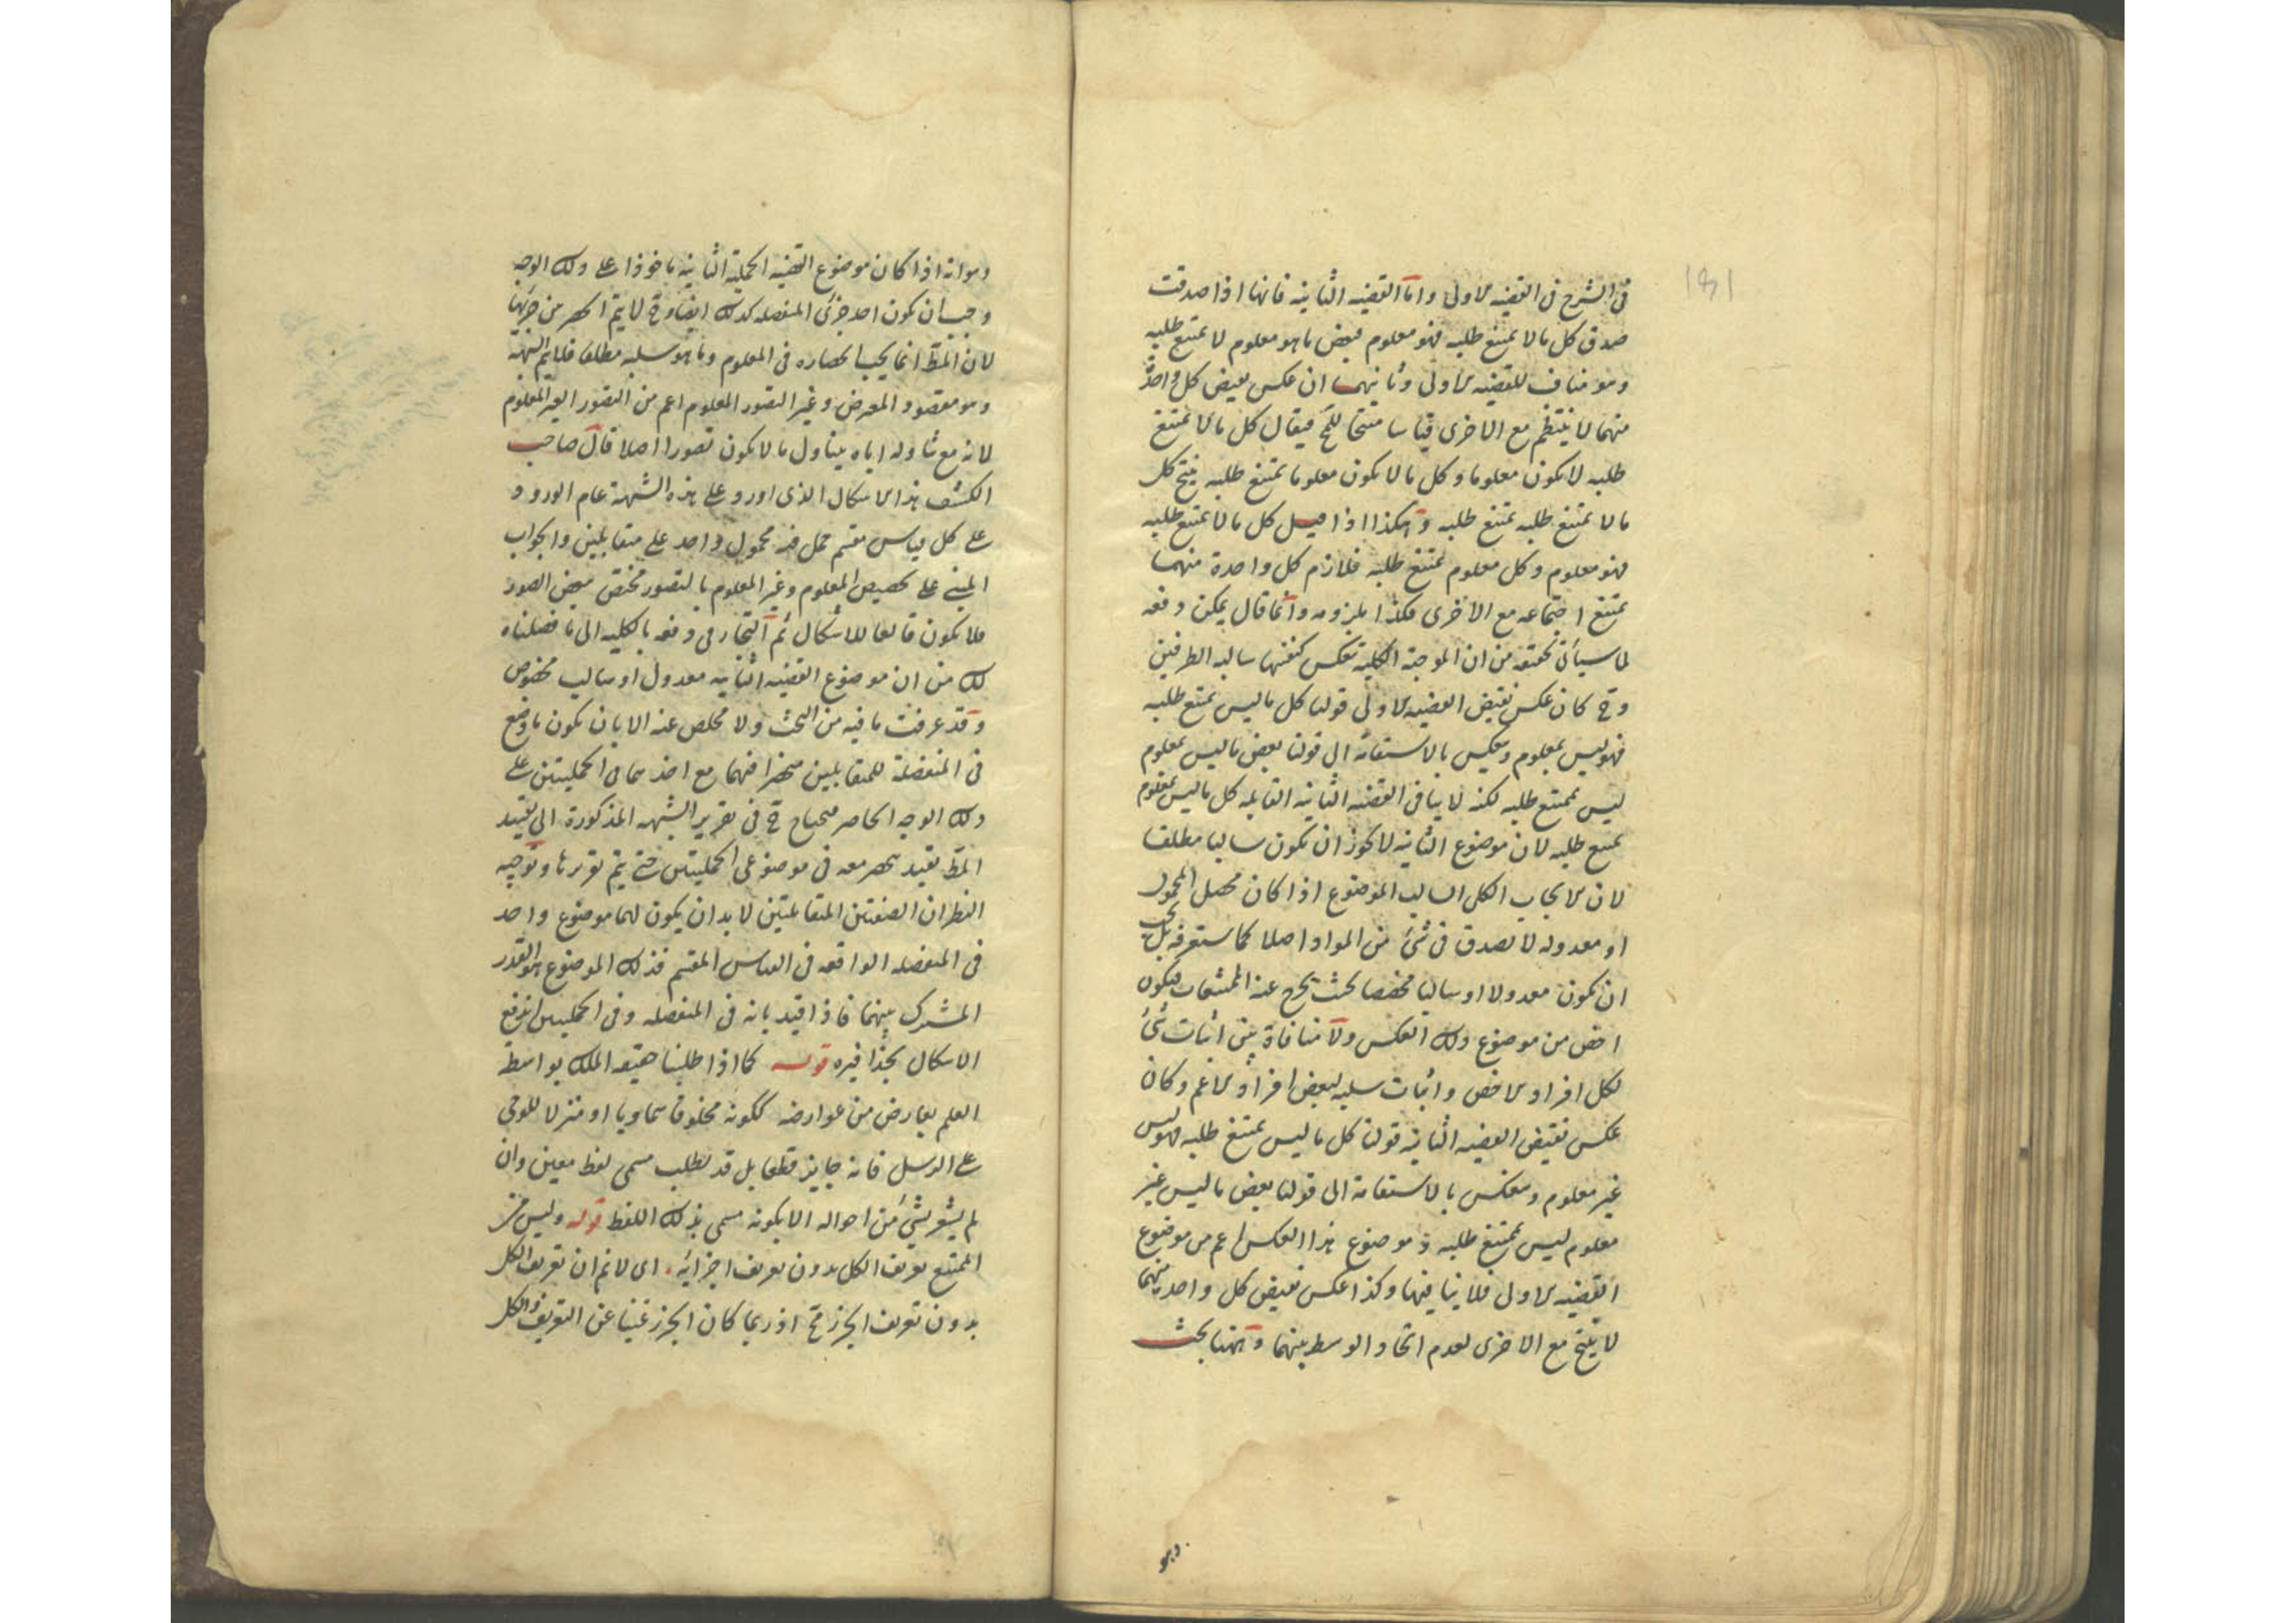 في الشرح في القضيه الاولى واما القضيه الثانيه فانها اذا صدقت
صدق كل ما لا يمتنع طلبه فهو معلوم فبعض ما هو معلوم لا يمتنع طلبه
وهو مناف للقضيه الاولى وثانيهما ان عكس نقيض كل واحد
منهما لا ينتظم مع الاخرى قياسا منتجا للمح فيقال كل ما لا يمتنع
طلبه لا يكون معلوما وكل ما لا يكون معلوما يمتنع طلبه ينتج كل
ما لا يمتنع طلبه يمتنع طلبه وهكذا اذا قيل كل ما لا يمتنع طلبه
فهو معلوم وكل معلوم يمتنع طلبه فلازم كل واحدة منهما
يمتنع اجتماعه مع الاخرى فكذا ملزومه وانما قال يمكن دفعه
لما سيأتى تحقيقه من ان الموجبة الكليه تعكس كنفسها سالبه الطرفين
وح كان عكس نقيض القضيه الاولى قولنا كل ما ليس يمتنع طلبه
فهو ليس بمعلوم وينعكس بالاستقامة الى قولنا بعض ما ليس بمعلوم
ليس يمتنع طلبه لكنه لا ينافى القضيه الثانيه القايله كل ما ليس بمعلوم
يمتنع طلبه لان موضوع الثانيه لا يجوز ان يكون سالبا مطلقا
لان الايجاب الكلى السالب الموضوع اذا كان محصل المحمول
او معدوله لا يصدق فى شئ من المواد اصلا كما ستعرفه بل يجب
ان يكون معدولا او سالبا مخصصا بحيث يخرج عنه الممتنعات فيكون
اخص من موضوع ذلك العكس ولا منافاة بين اثبات شئ
لكل افراد الاخص واثبات سلبه لبعض افراد الاعم وكان
عكس نقيض القضيه الثانيه قولنا كل ما ليس يمتنع طلبه فهو ليس
غير معلوم وينعكس بالاستقامة الى قولنا بعض ما ليس غير
معلوم ليس يمتنع طلبه وموضوع هذا العكس اعم من موضوع
القضيه الاولى فلا ينافيها وكذا عكس نقيض كل واحد منهما
لا ينتج مع الاخرى لعدم اتحاد الوسط بينهما وههنا بحث
وهو
وهو انه اذا كان موضوع القضيه الحمليه الثانيه ماخوذا على ذلك الوجه
وجب ان يكون احد جزئى المنفصله كذلك ايضا وح لا يتم الحصر من جزئيها
لان المط انما يجب انحصاره فى المعلوم وما هو سلبه مطلقا فلا يتم الشبهة
وهو مقصود المعترض وغير التصور المعلوم اعم من التصور الغير المعلوم
لانه مع تناوله اياه يتناول ما لا يكون تصورا اصلا قال صاحب
الكشف هذا الاشكال الذى اورد على هذه الشبهة عام الورود
على كل قياس مقسم حمل فيه محمول واحد على متقابلين والجواب
المبنى على تخصيص المعلوم وغير المعلوم بالتصور مختص ببعض الصور
فلا يكون قالعا للاشكال ثم التجأ فى دفعه بالكليه الى ما فصلناه
لك من ان موضوع القضيه الثانيه معدول او سالب مخصوص
وقد عرفت ما فيه من البحث ولا مخلص عنه الا بان يكون ما وقع
فى المنفصلة للمتقابلين منحصرا فيهما مع اخذهما فى الحمليتين على
ذلك الوجه الحاصر فيحتاج ح فى تقرير الشبهه المذكورة الى تقييد
المط بقيد ينحصر معه فى موضوعى الحمليتين حتى يتم تقريرها وتوجيه
النظر ان الصفتين المتقابلتين لا بد ان يكون لهما موضوع واحد
فى المنفصله الواقعه فى القياس المقسم فذلك الموضوع هو القدر
المشترك بينهما فاذا قيد بانه فى المنفصله وفى الحمليتين اندفع
الاشكال بحذافيره قوله كما اذا طلبنا حقيقه الملك بواسطة
العلم بعارض من عوارضه ككونه مخلوقا سماويا او منزلا للوحى
على الرسل فانه جايز قطعا بل قد يطلب مسمى لفظ معين وان
لم يشعر بشئ من احواله الا بكونه مسمى بذلك اللفظ قوله وليس من
الممتنع تعريف الكل بدون تعريف اجزايه. اى لا نم ان تعريف الكل
بدون تعريف الجزء مح اذ ربما كان الجزء غنيا عن التعريف والكل